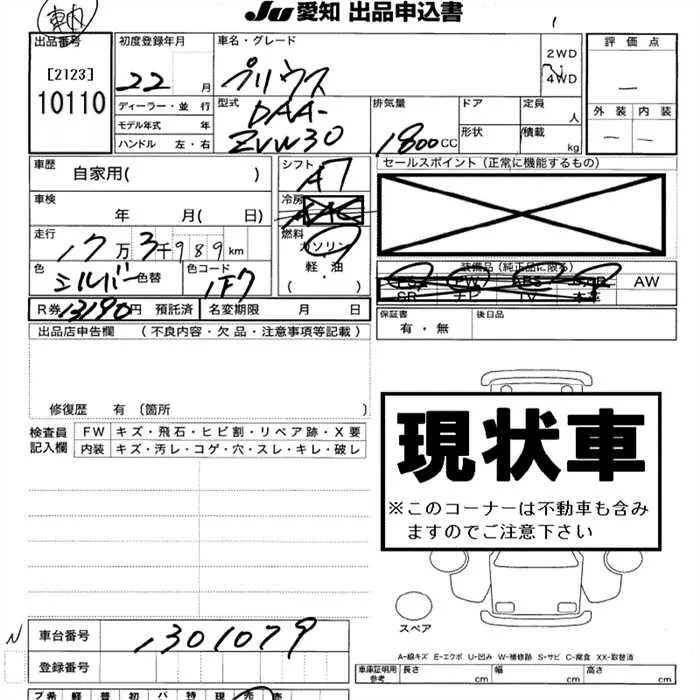 車内
JU 愛知 出品申込書
出品番号
[2123]
10110
初度登録年月
22 月
ディーラー・並 行
モデル年式 年
ハンドル 左・右
車名・グレード
プリウス
2WD
4WD
型式
DAA-
ZVW30
排気量
1800 CC
ドア
形状
定員
人
積載
kg
評 価 点
—
外 装 内 装
— —
車歴
自家用( )
車検
年 月( 日)
走行
17万3千989km
色
シルバー 色替
色コード
1F7
シフト
A7
冷房
AAC
燃料
ガソリン
軽・油
( ・ )
R券 13190円 預託済
名変期限 月 日
セールスポイント (正常に機能するもの)
装備品 (純正品に限る)
PS PW ABS AW
SR ナビ TV 本革
保証書
有・無
後日品
出品店申告欄 (不良内容・欠品・注意事項等記載)
修復歴 有 (箇所 )
検査員
記入欄
FW キズ・飛石・ヒビ割・リペア跡・X要
内装 キズ・汚レ・コゲ・穴・スレ・キレ・破レ
現状車
※このコーナーは不動車も含み
ますのでご注意下さい
スペア
N
車台番号
1301079
登録番号
A-線キズ E-エクボ U-凹み W-補修跡 S-サビ C-腐食 XX-取替済
車庫証明用
参考
長さ cm
幅 cm
高さ cm
プ 希 軽 普 初 パ 特 現 売 売